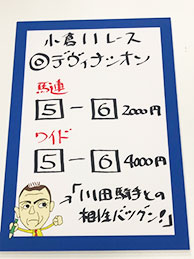 小倉11レース
◎デヴィナシオン
馬連
5-6 2000円
ワイド
5-6 4000円
「川田騎手との
相性バツグン!」